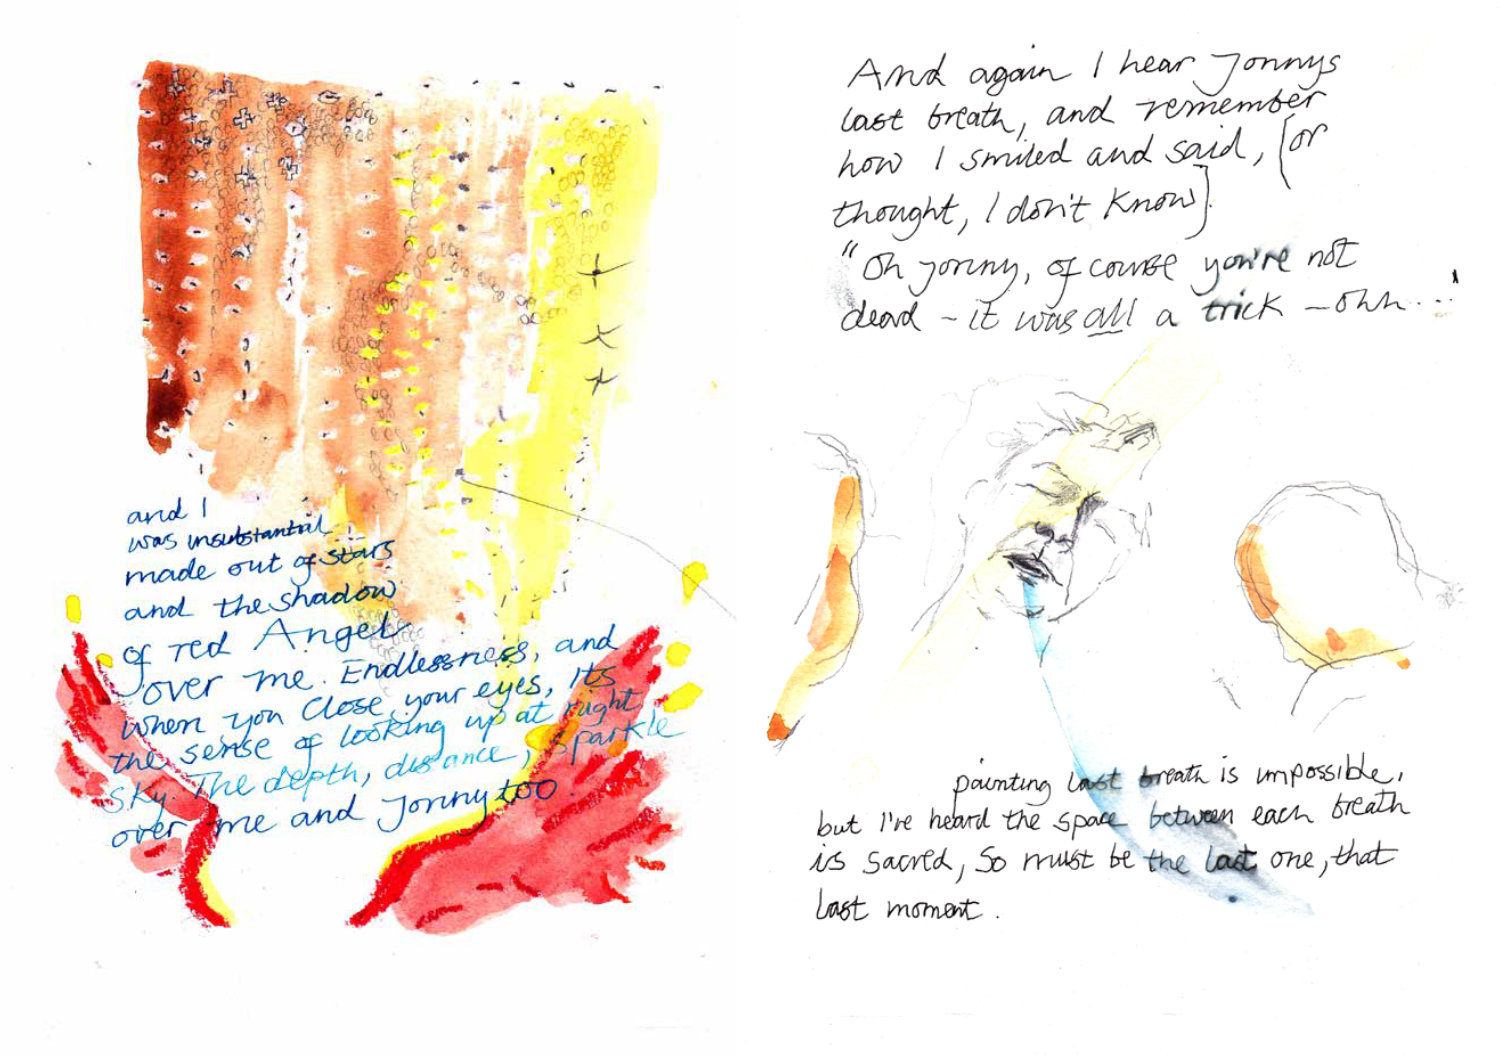 and I
was insubstantial,
made out of stars
and the shadow
of red Angel
over me. Endlessness, and
when you close your eyes, its
the sense of looking up at night
sky. The depth, distance, sparkle
over me and Jonny too.
And again I hear Jonnys
last breath, and remember
how I smiled and said, [or
thought, I don't know].
"Oh Jonny, of course you're not
dead - it was all a trick - ohh....
painting last breath is impossible,
but I've heard the space between each breath
is sacred, so must be the last one, that
last moment.